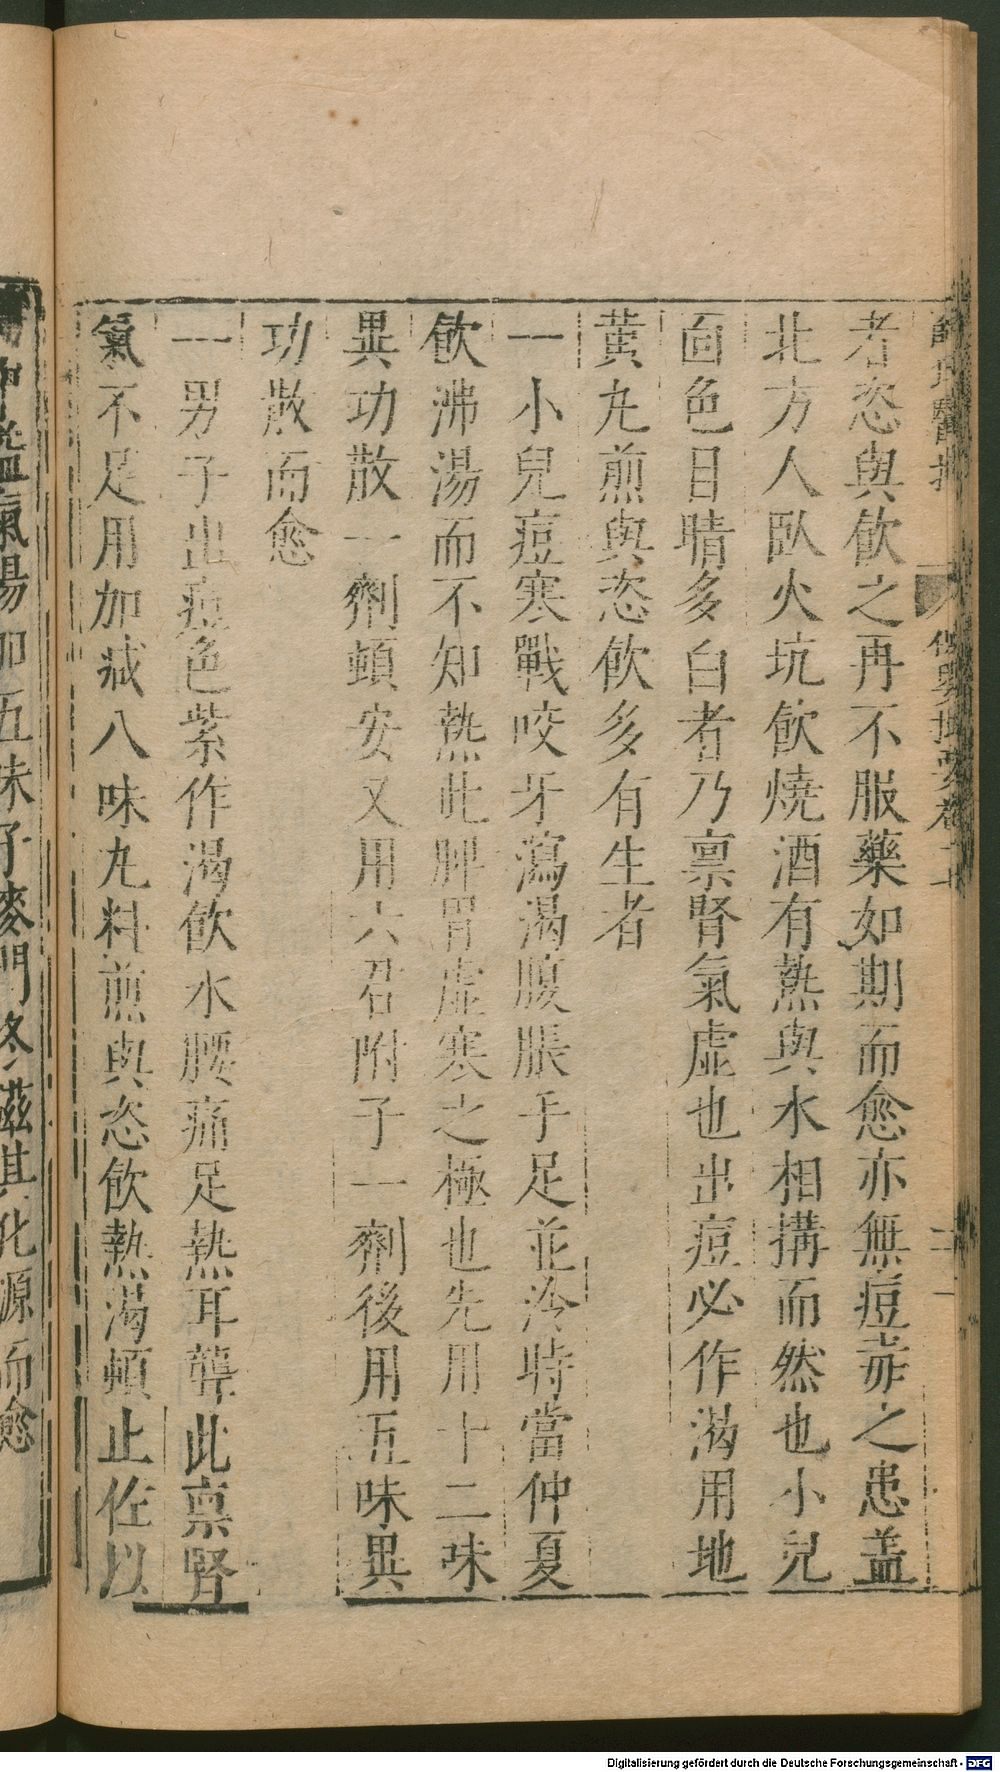 者恣與飲之再不服藥如期而愈亦無痘毒之患蓋
北方人臥火坑飲燒酒有熱與水相搆而然也小兒
面色目睛多白者乃禀腎氣虛也出痘必作渴用地
黄丸煎與恣飲多有生者
一小兒痘寒戰咬牙瀉渴腹脹手足並冷時當仲夏
飲沸湯而不知熱此脾胃虛寒之極也先用十二味
異功散一劑頓安又用六君附子一劑後用五味異
功散而愈
一男子出痘色紫作渴飲水腰痛足熱耳聾此禀腎
氣不足用加減八味丸料煎與恣飲熱渴頓止佐以
中益氣湯加五味子麥門冬滋其化源而愈
Digitalisierung gefördert durch die Deutsche Forschungsgemeinschaft - DFG